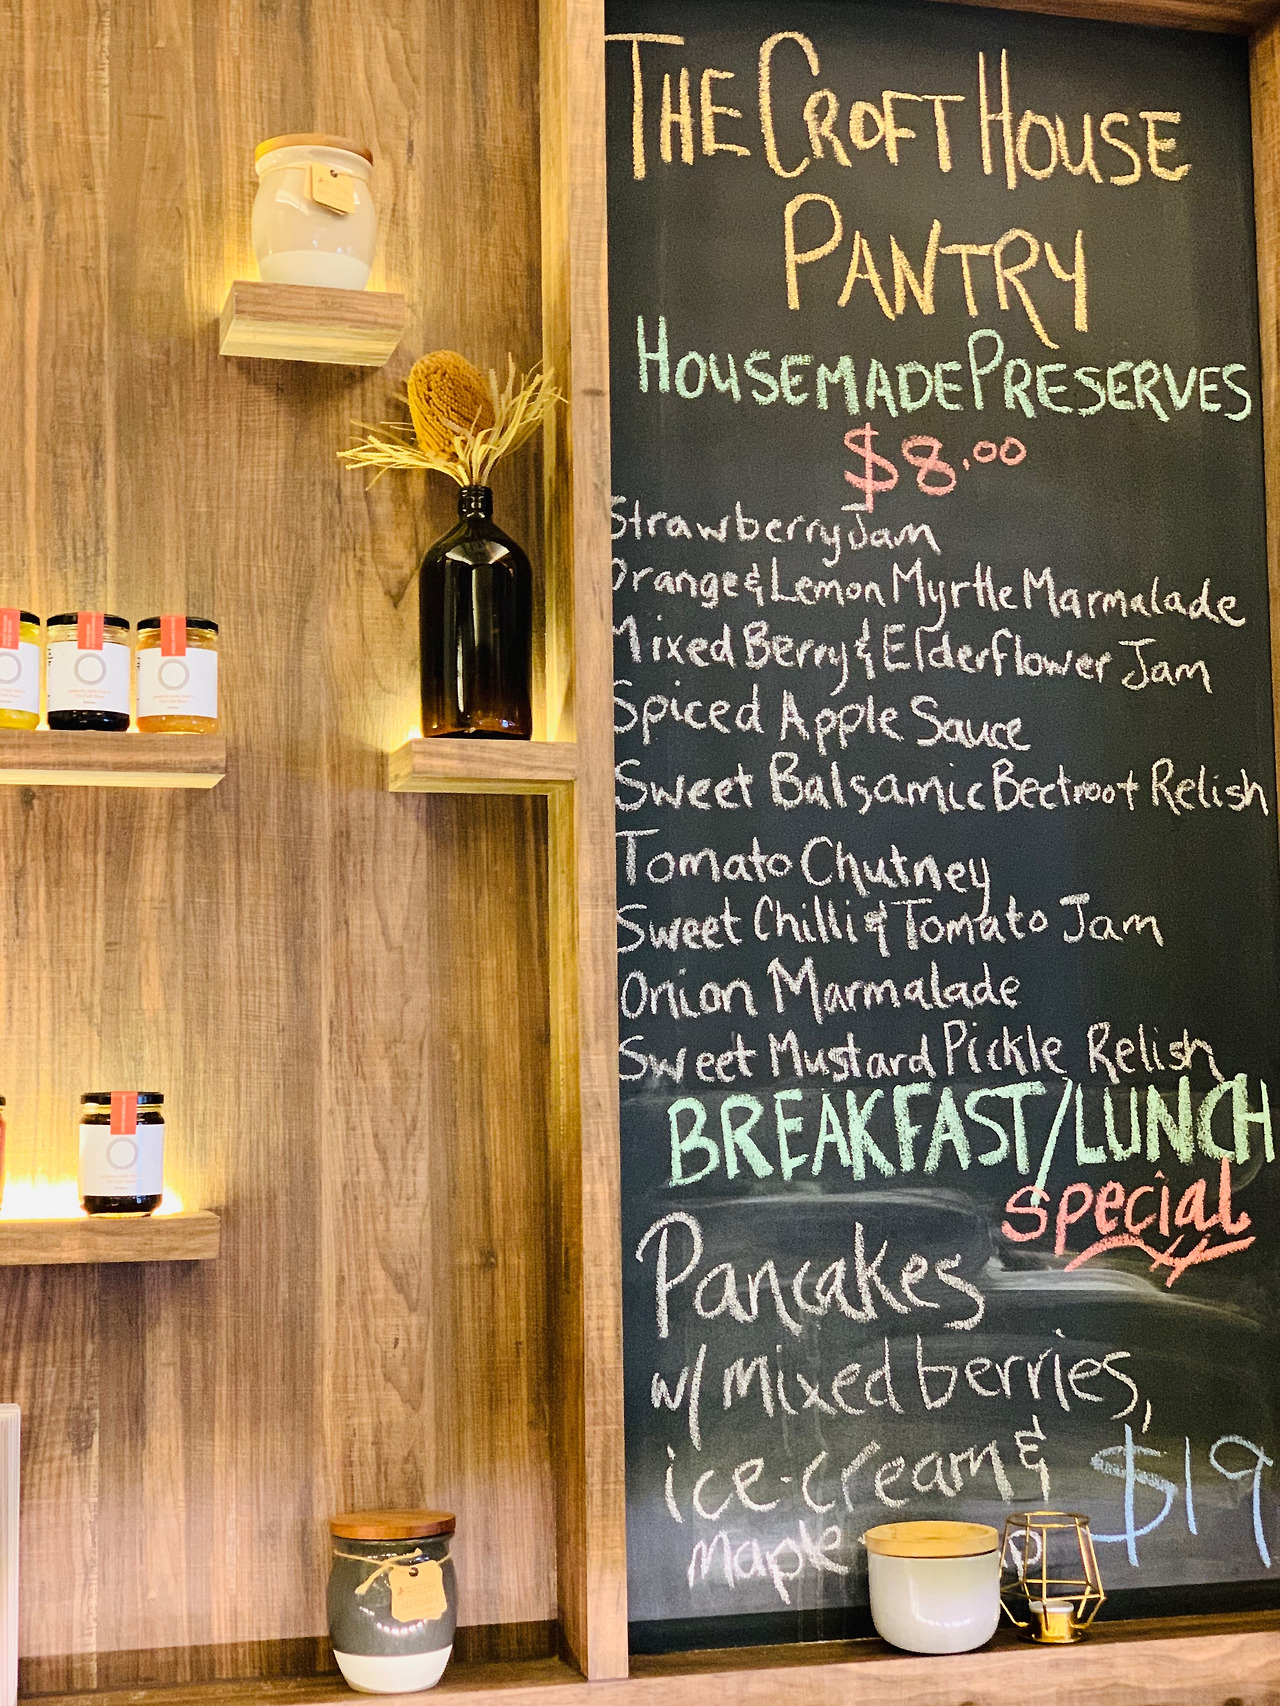 THE CROFT HOUSE
PANTRY
HOUSEMADE PRESERVES
$8.00
Strawberry Jam
Orange & Lemon Myrtle Marmalade
Mixed Berry & Elderflower Jam
Spiced Apple Sauce
Sweet Balsamic Beetroot Relish
Tomato Chutney
Sweet Chilli & Tomato Jam
Onion Marmalade
Sweet Mustard Pickle Relish
BREAKFAST/LUNCH
special
Pancakes
w/ mixed berries,
ice-cream &
$19
maple